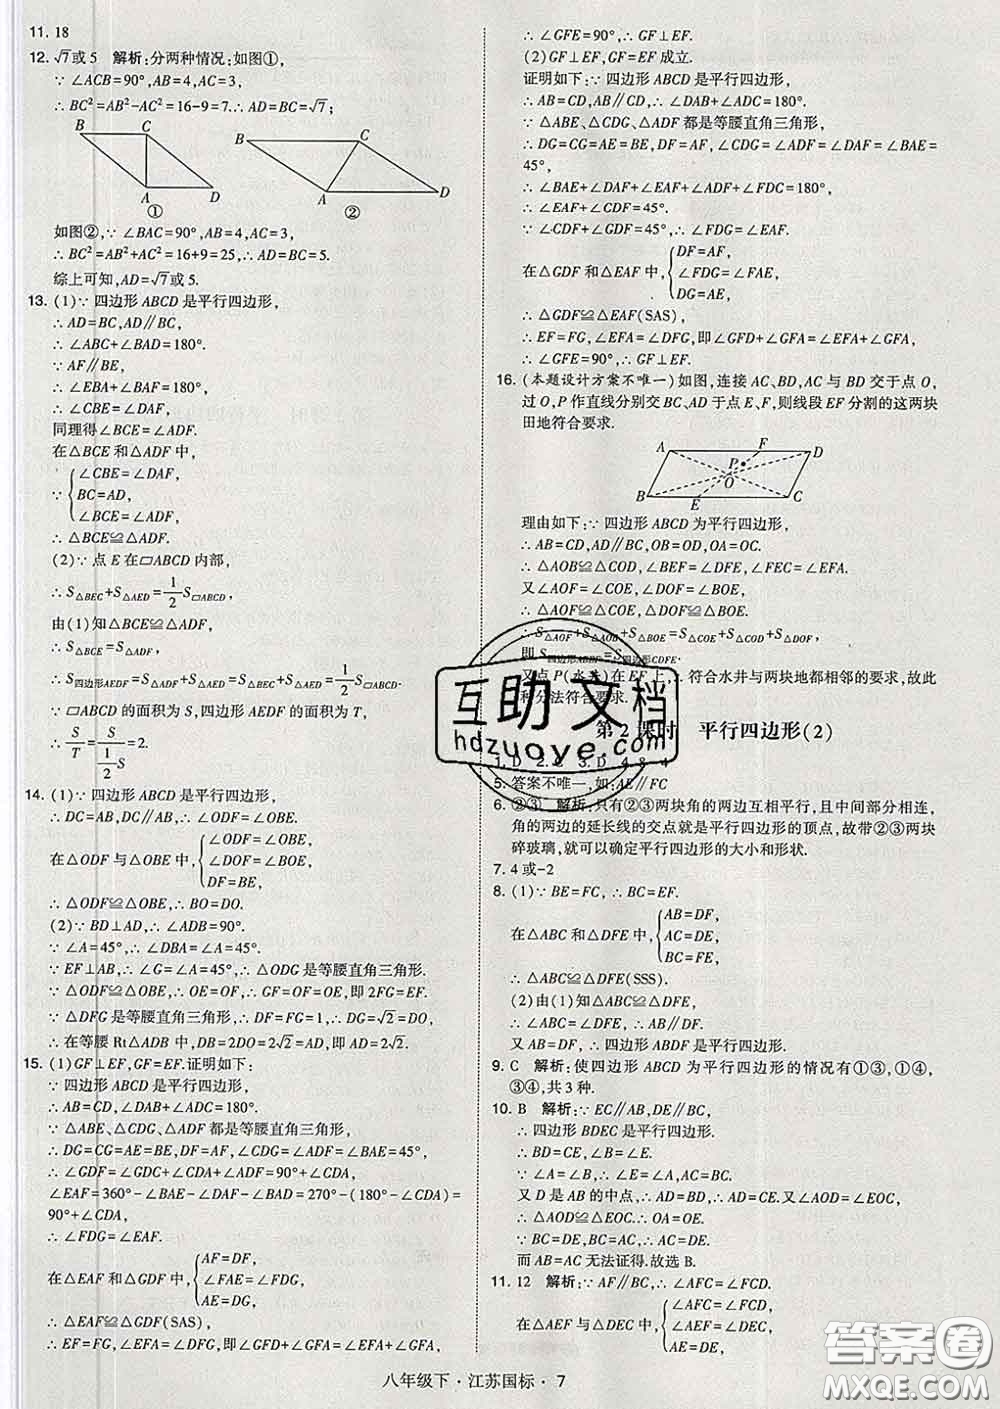 11. 18
12. √7或5 解析:分两种情况:如图①,
∵ ∠ACB=90°,AB=4,AC=3,
∴ BC²=AB²-AC²=16-9=7.∴ AD=BC=√7;
B C A D
①
B C A D
②
如图②,∵ ∠BAC=90°,AB=4,AC=3,
∴ BC²=AB²+AC²=16+9=25,∴ AD=BC=5.
综上可知,AD=√7或5.
13. (1)∵ 四边形ABCD是平行四边形,
∴ AD=BC,AD∥BC,
∴ ∠ABC+∠BAD=180°.
∵ AF∥BE,
∴ ∠EBA+∠BAF=180°,
∴ ∠CBE=∠DAF,
同理得∠BCE=∠ADF.
在△BCE和△ADF中,
∵ {∠CBE=∠DAF,
BC=AD,
∠BCE=∠ADF,
∴ △BCE≌△ADF.
(2)∵ 点E在▱ABCD内部,
∴ S△BEC+S△AED=1/2 S▱ABCD,
由(1)知△BCE≌△ADF,
∴ S△BCE=S△ADF,
∴ S四边形AEDF=S△ADF+S△AED=S△BEC+S△AED=1/2 S▱ABCD.
∵ ▱ABCD的面积为S,四边形AEDF的面积为T,
∴ S/T=S/(1/2 S)=2.
14. (1)∵ 四边形ABCD是平行四边形,
∴ DC=AB,DC∥AB,∴ ∠ODF=∠OBE.
在△ODF与△OBE中,{∠ODF=∠OBE,
∠DOF=∠BOE,
DF=BE,
∴ △ODF≌△OBE,∴ BO=DO.
(2)∵ BD⊥AD,∴ ∠ADB=90°.
∵ ∠A=45°,∴ ∠DBA=∠A=45°.
∵ EF⊥AB,∴ ∠G=∠A=45°,∴ △ODG是等腰直角三角形.
∵ △ODF≌△OBE,∴ OE=OF,∴ GF=OF=OE,即2FG=EF.
∵ △DFG是等腰直角三角形,∴ DF=FG=1,∴ DG=√2=DO,
∴ 在等腰Rt△ADB中,DB=2DO=2√2=AD,即AD=2√2.
15. (1)GF⊥EF,GF=EF.证明如下:
∵ 四边形ABCD是平行四边形,
∴ AB=CD,∠DAB+∠ADC=180°.
∵ △ABE、△CDG、△ADF都是等腰直角三角形,
∴ DG=CG=AE=BE,DF=AF,∠CDG=∠ADF=∠BAE=45°,
∴ ∠GDF=∠GDC+∠CDA+∠ADF=90°+∠CDA,
∠EAF=360°-∠BAE-∠DAF-∠BAD=270°-(180°-∠CDA)=
90°+∠CDA,
∴ ∠FDG=∠EAF.
在△EAF和△GDF中,{AF=DF,
∠FAE=∠FDG,
AE=DG,
∴ △EAF≌△GDF(SAS),
∴ EF=FG,∠EFA=∠DFG,即∠GFE+∠GFA=∠GFA+∠DFA,
∴ ∠GFE=90°,∴ GF⊥EF.
(2)GF⊥EF,GF=EF成立.
证明如下:∵ 四边形ABCD是平行四边形,
∴ AB=CD,∠DAB+∠ADC=180°.
∵ △ABE、△CDG、△ADF都是等腰直角三角形,
∴ DG=CG=AE=BE,DF=AF,∠CDG=∠ADF=∠BAE=
45°,
∴ ∠BAE+∠DAF+∠EAF+∠ADF+∠FDC=180°,
∴ ∠EAF+∠CDF=45°.
∵ ∠CDF+∠GDF=45°,∴ ∠FDG=∠EAF,
在△GDF和△EAF中,{DF=AF,
∠FDG=∠FAE,
DG=AE,
∴ △GDF≌△EAF(SAS)
∴ EF=FG,∠EFA=∠DFG,即∠GFD+∠GFA=∠EFA+∠GFA,
∴ ∠GFE=90°,∴ GF⊥EF.
16. (本题设计方案不唯一)如图,连接AC、BD,AC与BD交于点O,
过O,P作直线分别交BC、AD于点E、F,则线段EF分割的这两块
田地符合要求.
A F D P O B E C
理由如下:∵ 四边形ABCD为平行四边形,
∴ AB=CD,AD∥BC,OB=OD,OA=OC.
∴ △AOB≌△COD,∠BEF=∠DFE,∠FEC=∠EFA.
又∠AOF=∠COE,∠DOF=∠BOE,
∴ △AOF≌△COE,△DOF≌△BOE.
∴ S△AOF+S△AOB+S△BOE=S△COE+S△COD+S△DOF,
即 S四边形ABEF=S四边形CDFE.
又点P(水井)在EF上,∴ 符合水井与两块地都相邻的要求,故此
种分法符合要求.
第2课时 平行四边形(2)
1. D 2. C 3. D 4. 8 4
5. 答案不唯一,如:AE∥FC
6. ②③ 解析:只有②③两块角的两边互相平行,且中间部分相连,
角的两边的延长线的交点就是平行四边形的顶点,故带②③两块
碎玻璃,就可以确定平行四边形的大小和形状.
7. 4或-2
8. (1)∵ BE=FC,∴ BC=EF.
在△ABC和△DFE中,{AB=DF,
AC=DE,
BC=FE,
∴ △ABC≌△DFE(SSS).
(2)由(1)知△ABC≌△DFE,
∴ ∠ABC=∠DFE,∴ AB∥DF.
又AB=DF,∴ 四边形ABDF是平行四边形.
9. C 解析:使四边形ABCD为平行四边形的情况有①③,①④,
③④,共3种.
10. B 解析:∵ EC∥AB,DE∥BC,
∴ 四边形BDEC是平行四边形.
∴ BD=CE,∠B=∠E.
∵ ∠A=∠B,∴ ∠A=∠E.
又D是AB的中点,∴ AD=BD,∴ AD=CE.又∠AOD=∠EOC,
∴ △AOD≌△EOC.∴ OA=OE.
∵ BC=DE,BC=AC,∴ AC=DE.
而AB=AC无法证得.故选B.
11. 12 解析:∵ AF∥BC,∴ ∠AFC=∠FCD.
在△AEF与△DEC中,{∠AFC=∠FCD,
∠AEF=∠DEC,
AE=DE,
八年级下·江苏国标·7
互助文档
hdzuoye.com
答案圈
MXQE.COM